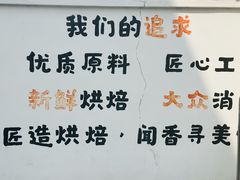 我们的追求
优质原料 匠心工
新鲜烘焙 大众消
匠造烘焙，闻香寻美